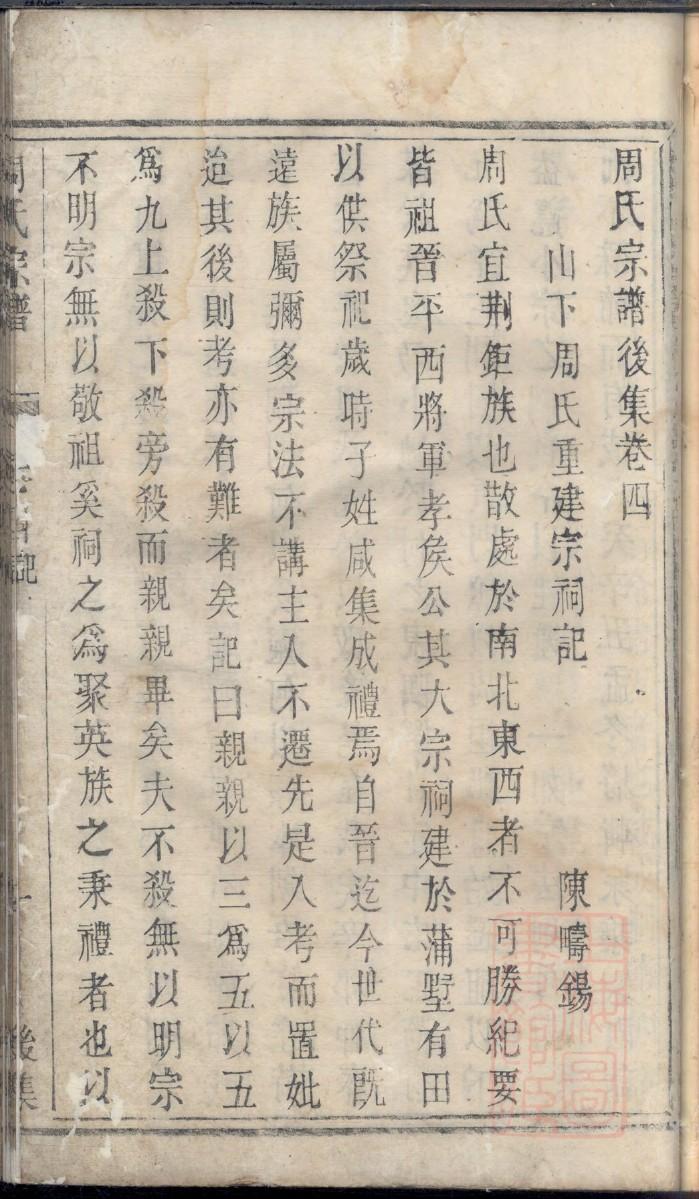 周氏宗譜後集卷四
山下周氏重建宗祠記 陳疇錫
周氏宜荆鉅族也散處於南北東西者不可勝紀要
皆祖晉平西將軍孝侯公其大宗祠建於蒲墅有田
以供祭祀歲時子姓咸集成禮焉自晉迄今世代旣
遠族屬彌多宗法不講主入不遷先是入考而置妣
迨其後則考亦有難者矣記曰親親以三爲五以五
爲九上殺下殺旁殺而親親畢矣夫不殺無以明宗
不明宗無以敬祖奚祠之爲聚英族之秉禮者也以
周氏宗譜 記 一 後集